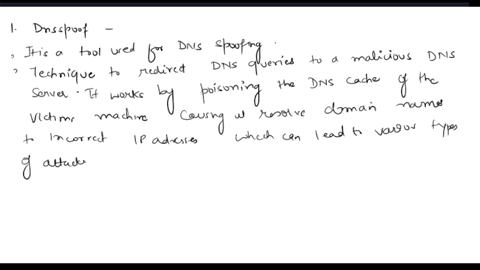 1. Dnsspoof -
, It is a tool used for DNS spoofing.
, Technique to redirect DNS queries to a malicious DNS
Server. It works by poisoning the DNS cache of the
victims machine causing it resolve domain names
to incorrect IP adresses which can lead to various types
of attacks